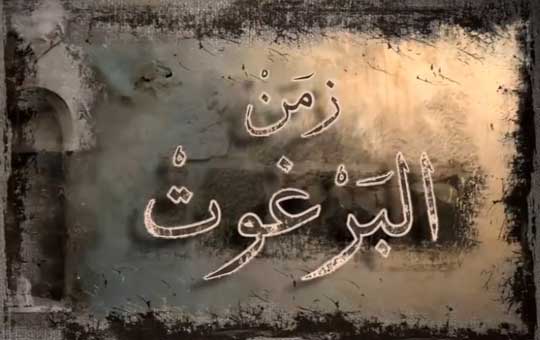 زمَنْ
البَرْغوتْ